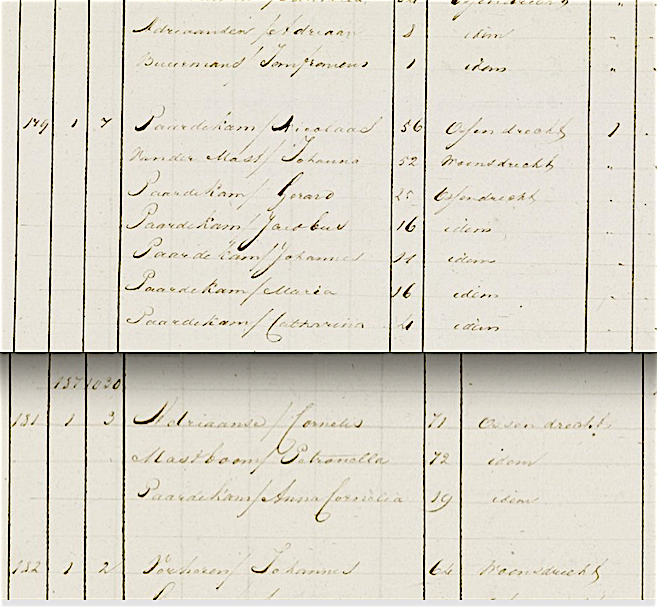 Adriaansen / Adriaan 8 idem "
Buurmans / 1 idem "
179 1 7 Paardekam / Nicolaas 56 Ossendrecht 1
van der Mast / Johanna 52 Woensdrecht "
Paardekam / Gerard 25 Ossendrecht "
Paardekam / Jacobus 16 idem "
Paardekam / Johannes idem "
Paardekam / Maria 16 idem "
Paardekam / Catharina idem "
187 1030
181 1 3 Adriaanse / Cornelis 71 Ossendrecht
Mastboom / Petronella 72 idem
Paardekam / Anna Cornelia 19 idem
182 1 2 Johannes 64 Woensdrecht